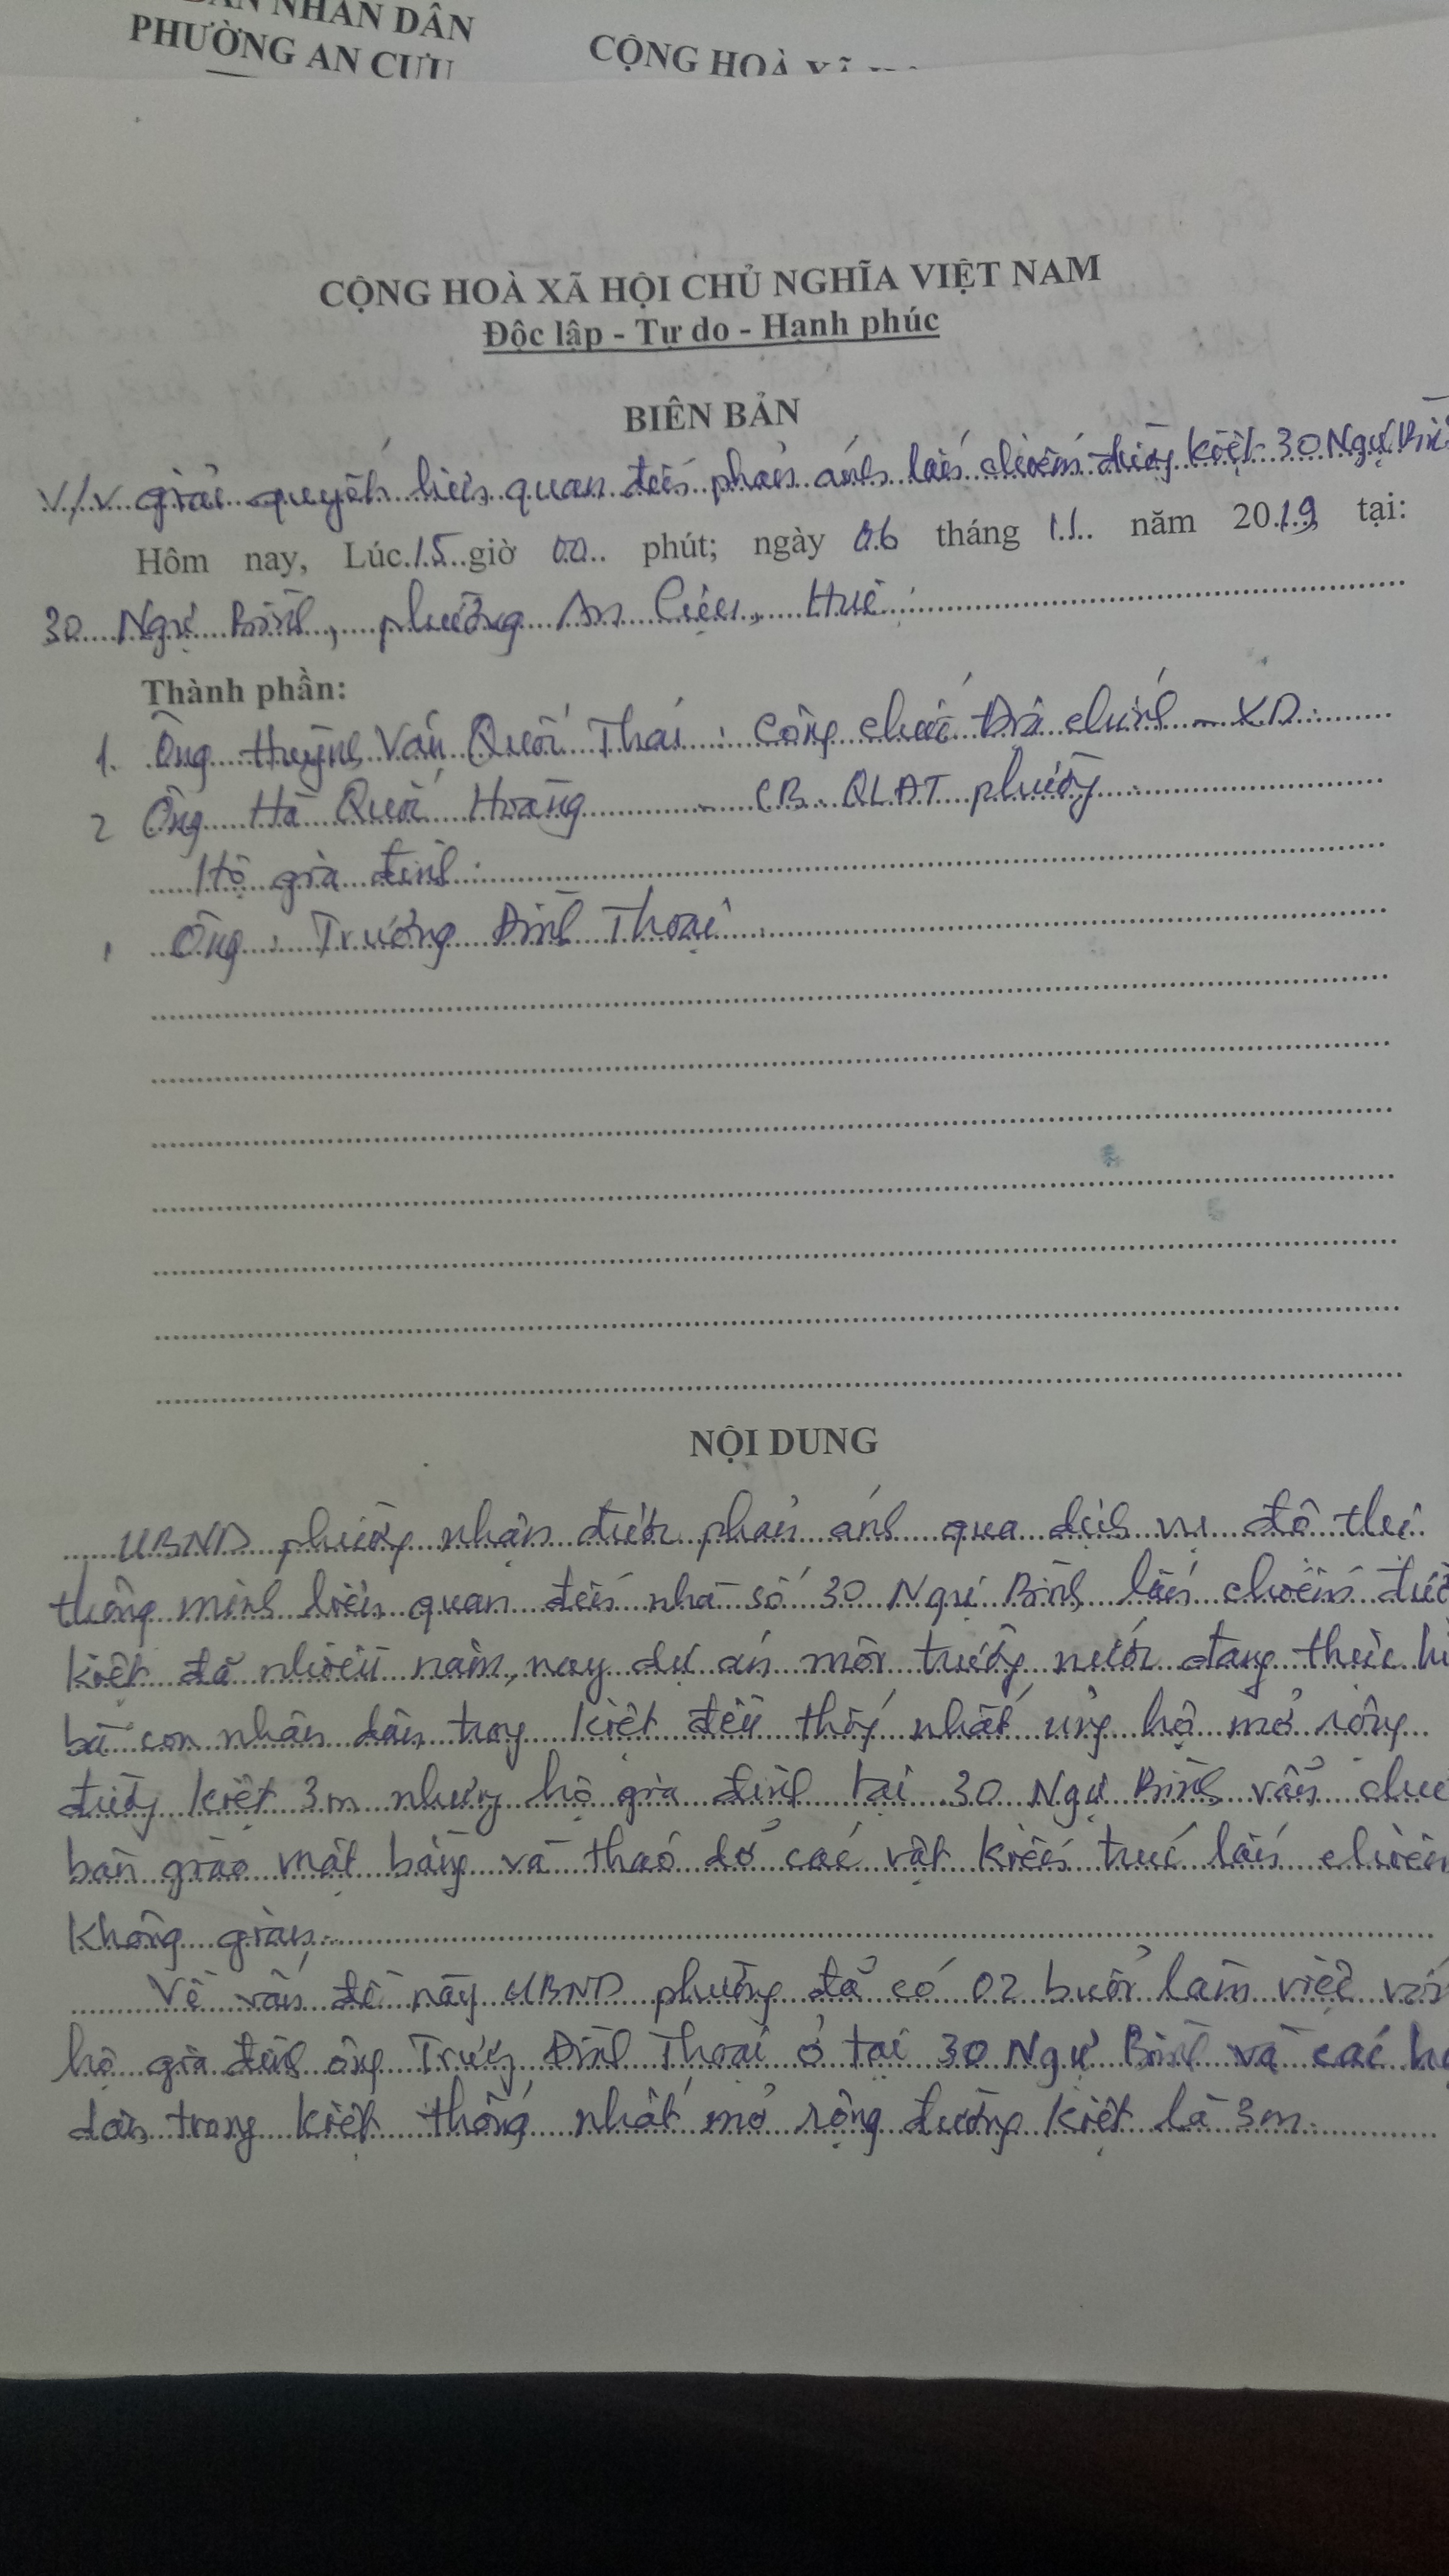 NHÂN DÂN
PHƯỜNG AN CỰU
CỘNG HOÀ XÃ
CỘNG HOÀ XÃ HỘI CHỦ NGHĨA VIỆT NAM
Độc lập - Tự do - Hạnh phúc
BIÊN BẢN
V/v giải quyết liên quan đến phản ánh lấn chiếm đường kiệt 30 Ngự Bình
Hôm nay, Lúc 15 giờ 00 phút; ngày 06 tháng 11 năm 2019 tại:
30 Ngự Bình, phường An Cựu, Huế
Thành phần:
1. Ông Huỳnh Văn Quốc Thái : Công chức Địa chính - XD.
2 Ông Hà Quốc Hoàng - CB QLĐT phường
Hộ gia đình :
1 Ông : Trương Đình Thoại
NỘI DUNG
UBND phường nhận được phản ánh qua dịch vụ đô thị
thông minh liên quan đến nhà số 30 Ngự Bình lấn chiếm đườ
kiệt đã nhiều năm, nay dự án môi trường nước đang thực hi
bà con nhân dân trong kiệt đều thống nhất ủng hộ mở rộng
đường kiệt 3m nhưng hộ gia đình tại 30 Ngự Bình vẫn chư
bàn giao mặt bằng và tháo dở các vật kiến trúc lấn chiếm
không gian.
Về vấn đề này UBND phường đã có 02 buổi làm việc với
hộ gia đình ông Trương Đình Thoại ở tại 30 Ngự Bình và các hộ
dân trong kiệt thống nhất mở rộng đường kiệt là 3m.